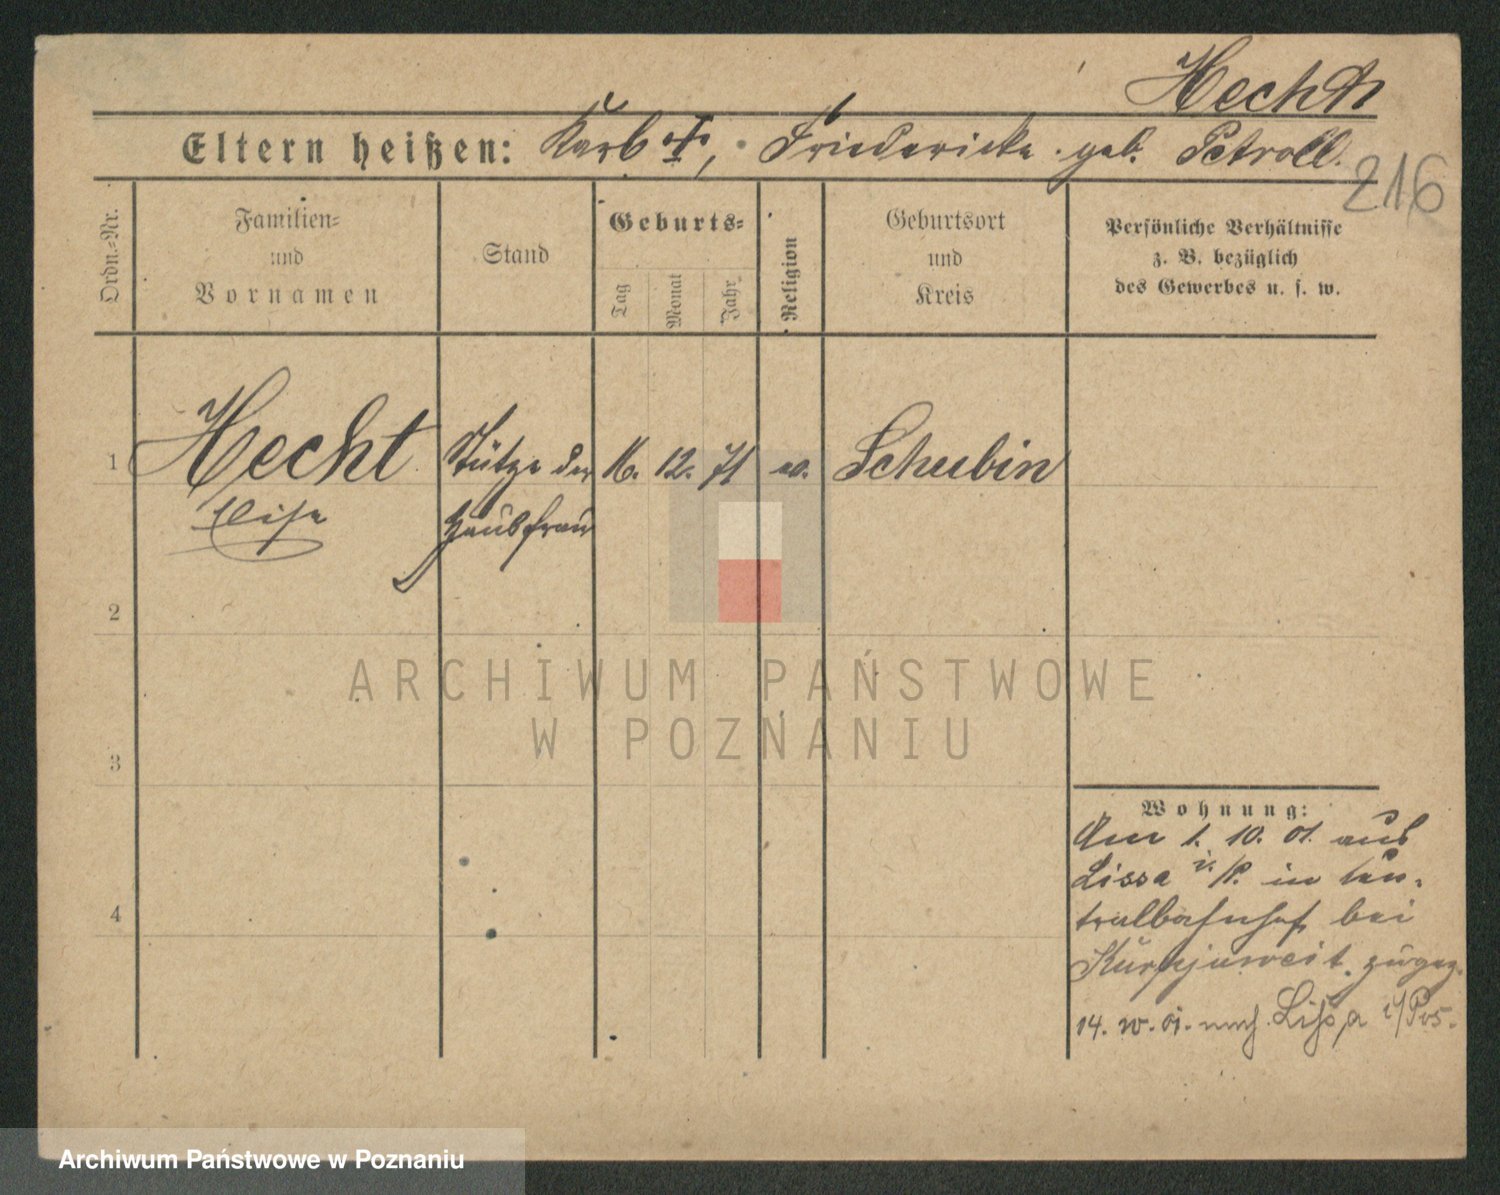 Hecht
Eltern heißen: Karl †, Friedericke geb. Petroll.
216
Ordn.=Nr.
Familien=
und
Vornamen
Stand
Geburts=
Tag
Monat
Jahr
Religion
Geburtsort
und
Kreis
Persönliche Verhältnisse
z. B. bezüglich
des Gewerbes u. s. w.
1 Hecht Stütze der 16. 12. 71 ev. Schubin
Elise Hausfrau
2
3
4
Wohnung:
Am 1. 10. 01. aus
Lissa i. P. in Cen-
tralbahnhof bei
zugez.
14. 10. 01. nach Lissa i/Pos.
ARCHIWUM PAŃSTWOWE
W POZNANIU
Archiwum Państwowe w Poznaniu